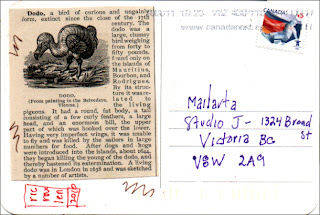 Dodo, a bird of curious and ungainly
form, extinct since the close of the 17th
century. The
dodo was a
large, clumsy
bird weighing
from forty to
fifty pounds,
found only on
the islands of
Mauritius,
Bourbon, and
Rodrigues.
By its struc-
ture it was re-
lated to
the living
DODO.
(From painting in the Belvedere,
Vienna.)
pigeons. It had a round, fat body, a tail
consisting of a few curly feathers, a large
head, and an enormous bill, the upper
part of which was hooked over the lower.
Having very imperfect wings, it was unable
to fly and was killed by the sailors in large
numbers for food. After dogs and hogs
were introduced into the islands, about 1644,
they began killing the young of the dodo, and
thereby hastened its extermination. A living
dodo was in London in 1638 and was sketched
by a number of artists.
CANADA
Mailarta
Studio J - 1324 Broad
St
Victoria BC
V8W 2A9